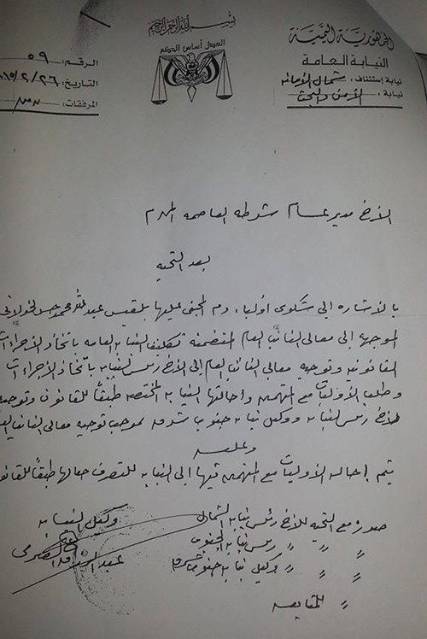 بسم الله الرحمن الرحيم
العدل أساس الحكم
الجمهورية اليمنية
النيابة العامة
نيابة إستئناف: شمال الأمانة
نيابة: الأمن والبحث
الرقم: ٥٩
التاريخ: ٢٦/٢/
المرفقات:
الأخ مدير عام شرطة العاصمة المحترم
بعد التحية
بالاشارة الى شكوى أولياء دم المجني عليها بلقيس عبدالله محمد حسن الخولاني
الموجهة إلى معالي النائب العام المتضمنة تكليف النيابة العامة باتخاذ الإجراءات
القانونية وتوجيه معالي النائب العام إلى الأخ رئيس النيابة باتخاذ الإجراءات
وطلب الأوليات مع المتهمة واحالتها النيابة المختصة طبقاً للقانون وتوجيه
الأخ رئيس نيابة ووكيل نيابة جنوب شرق بموجب توجيه معالي النائب العام
وعليه
يتم إحالة الأوليات مع المتهمة فيها إلى النيابة للتصرف حيالها طبقاً للقانون
صورة مع التحية للأخ رئيس نيابة الشمال
〃 〃 〃 رئيس نيابة الجنوب
〃 〃 〃 وكيل نيابة جنوب شرق
〃 للمتابعة
وكيل النيابة